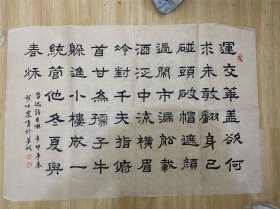 運交華蓋欲何
求未敢翻身已
碰頭破帽遮顏
過鬧市漏船載
酒泛中流橫眉
冷對千夫指俯
首甘為孺子牛
躲進小樓成一
統管他冬夏與
春秋
魯迅詩自嘲 辛卯年春
書於